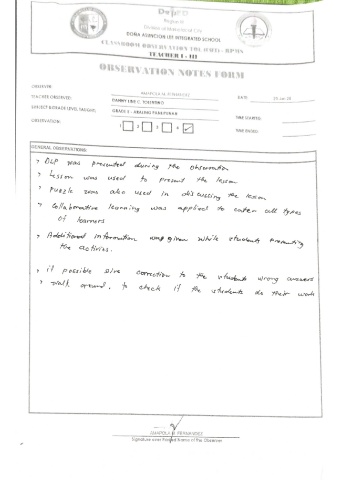 DepED
Region
Division of
DOÑA ASUNCION LEE INTEGRATED SCHOOL
CLASSROOM OBSERVATION TOOL (COT) - RPMS
TEACHER I - III
OBSERVATION NOTES FORM
OBSERVER:
TEACHER OBSERVED:
SUBJECT & GRADE LEVEL TAUGHT:
OBSERVATION:
DATE:
TIME STARTED:
TIME ENDED:
1 2 3 4 ✓
GENERAL OBSERVATIONS:
, DLP was presented during the observation
, Lesson was used to present the lesson
, Puzzle was also used in discussing the lesson
, Collaborative learning was applied to cater all types
of learners
, Additional information was given while students presenting
the activies.
, if possible give correction to the students wrong answers
, walk around, to check if the students do their work
FERNANDEZ
Signature over Printed Name of the Observer